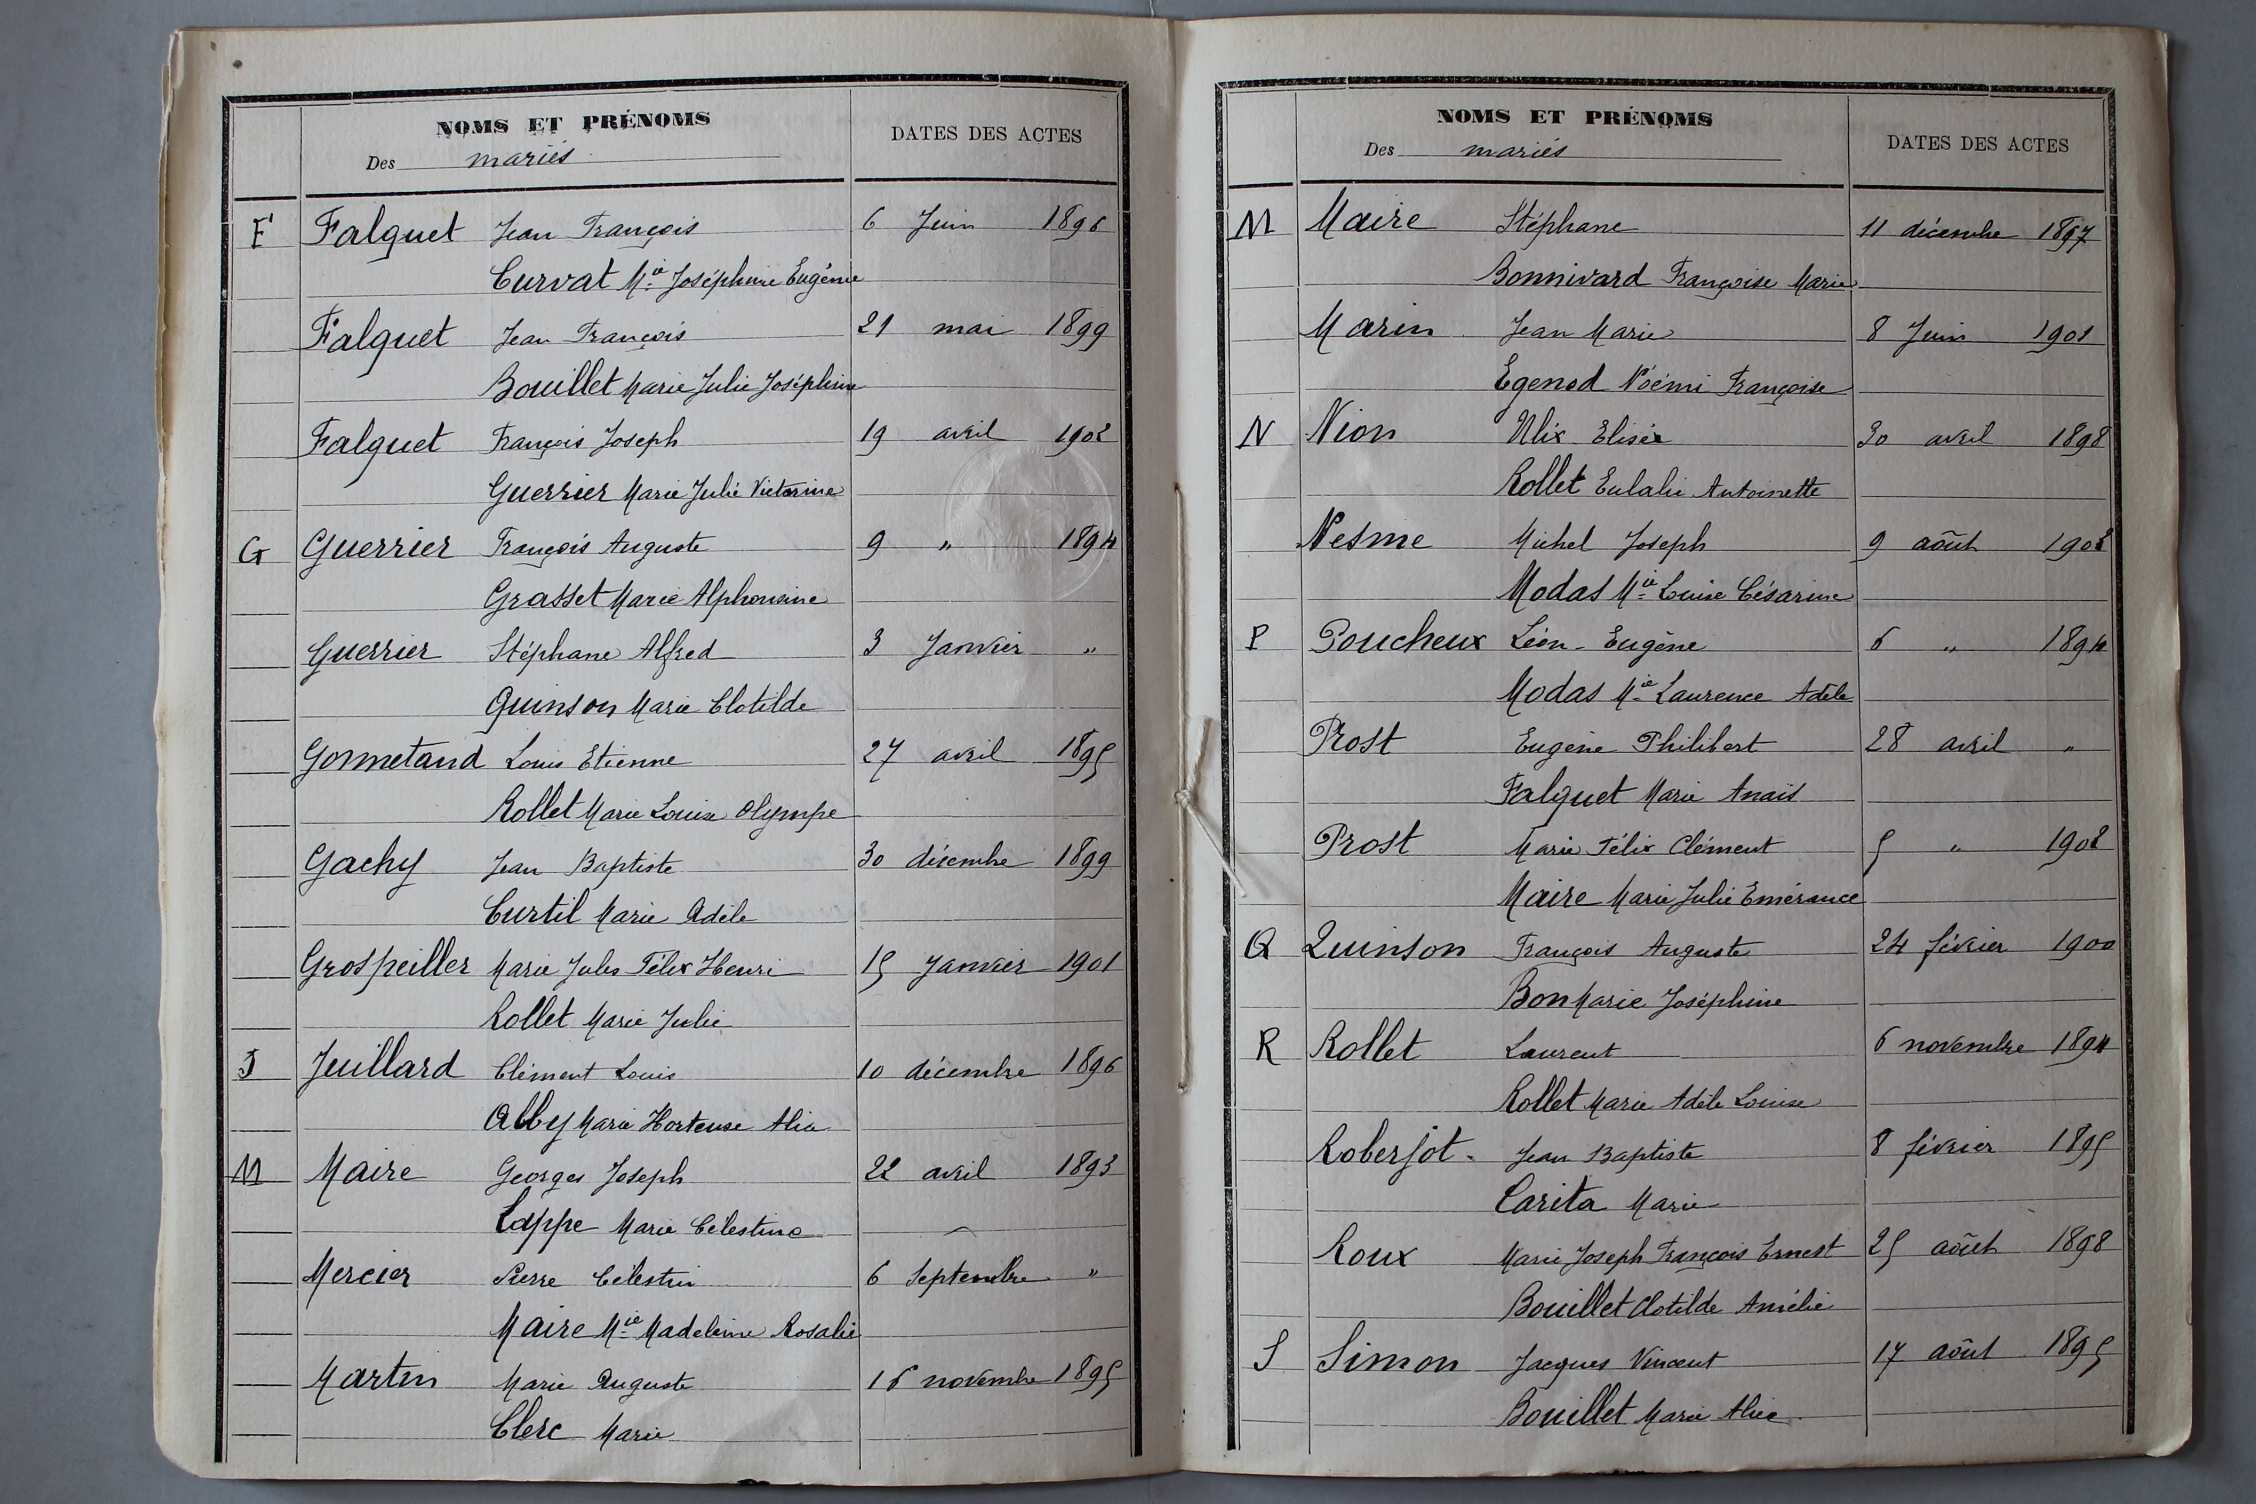 NOMS ET PRÉNOMS
Des mariés
DATES DES ACTES
F Falquet Jean François 6 Juin 1896
Curvat Mie Joséphine Eugénie
Falquet Jean François 21 mai 1899
Bouillet Marie Julie Joséphine
Falquet François Joseph 19 avril 1902
Guerrier Marie Julie Victorine
G Guerrier François Auguste 9 " 1894
Grasset Marie Alphonsine
Guerrier Stéphane Alfred 3 Janvier "
Quinson Marie Clotilde
Gonnetand Louis Etienne 27 avril 1895
Rollet Marie Louise Olympe
Gachy Jean Baptiste 30 décembre 1899
Curtil Marie Adèle
Grospeiller Marie Jules Félix Henri 15 Janvier 1901
Rollet Marie Julie
J Juillard Clément Louis 10 décembre 1896
Alby Marie Hortense Alia
M Maire Georges Joseph 22 avril 1893
Lappe Marie Célestine
Mercier Pierre Célestin 6 Septembre "
Maire Mie Madeleine Rosalie
Martin Marie Auguste 16 novembre 1895
Clerc Marie
NOMS ET PRÉNOMS
Des mariés
DATES DES ACTES
M Maire Stéphane 11 décembre 1897
Bonnivard Françoise Marie
Marin Jean Marie 8 Juin 1901
Egenod Noémi Françoise
N Nion Ulix Elisée 30 avril 1898
Rollet Eulalie Antoinette
Nesme Michel Joseph 9 août 1902
Modas Mie Louise Césarine
P Poucheux Léon-Eugène 6 " 1894
Modas Mie Laurence Adèle
Prost Eugène Philibert 28 avril "
Falquet Marie Anaïs
Prost Marie Félix Clément 5 " 1902
Maire Marie Julie Emérance
Q Quinson François Auguste 24 février 1900
Bon Marie Joséphine
R Rollet Laurent 6 novembre 1894
Rollet Marie Adèle Louise
Roberjot Jean Baptiste 8 février 1895
Carita Marie
Roux Marie Joseph François Ernest 25 août 1898
Bouillet Clotilde Amélie
S Simon Jacques Vincent 17 août 1895
Bouillet Marie Alice